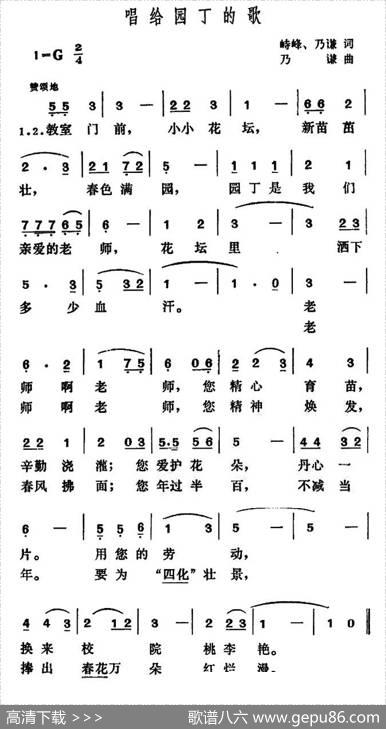 唱给园丁的歌
1=G 2/4
峙峰、乃谦 词
乃 谦 曲
赞颂地
5 5 3 | 3 — | 2 2 3 | 1 — | 6 6 2 |
1.2.教室 门 前, 小小 花 坛, 新苗 苗
2 · 3 | 2 1 7 2 | 5 — | 1 1 1 | 2 1 |
壮, 春色满 园, 园丁是 我 们
7 7 7 6 5 | 3 — | 1 2 | 3 — | 3 2 3 |
亲爱的老 师, 花 坛 里 洒下
5 · 3 | 5 3 2 | 1 — | 1 · 0 | 3 — |
多 少 血 汗。 老
老
6 · 2 | 1 7 5 | 6 0 6 | 2 2 3 | 4 3 |
师 啊 老 师, 您 精心 育 苗,
师 啊 老 师, 您 精神 焕 发,
2 2 1 | 2 0 3 | 5·5 5 6 | 5 — | 4 4 3 2 |
辛勤 浇 灌; 您 爱护 花 朵, 丹心 一
春风 拂 面; 您 年过 半 百, 不减 当
6 — | 5 5 6 | 1 3 | 5 — | 5 — |
片。 用您 的 劳 动,
年。 要为 “四化”壮 景,
4 4 3 | 2 1 2 | 0 3 2 | 1 — | 1 0 ‖
换 来 校 院 桃李 艳。
捧 出 春花万 朵 红烂 漫。
高清下载 >>>
歌谱八六 www.gepu86.com